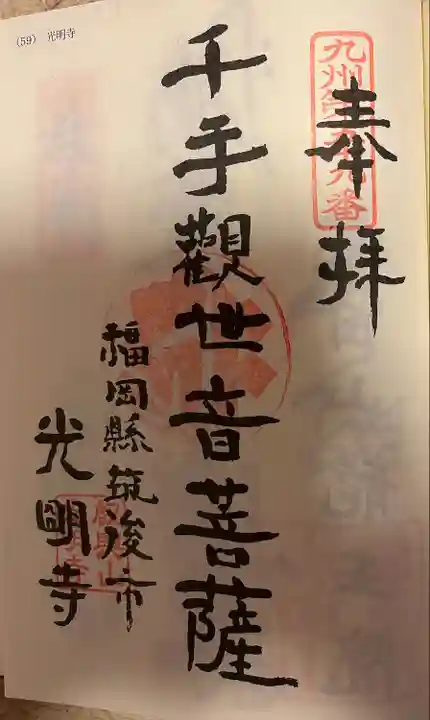 (59) 光明寺
九州第五十九番
奉拝
千手觀世音菩薩
福岡縣筑後市
光明寺